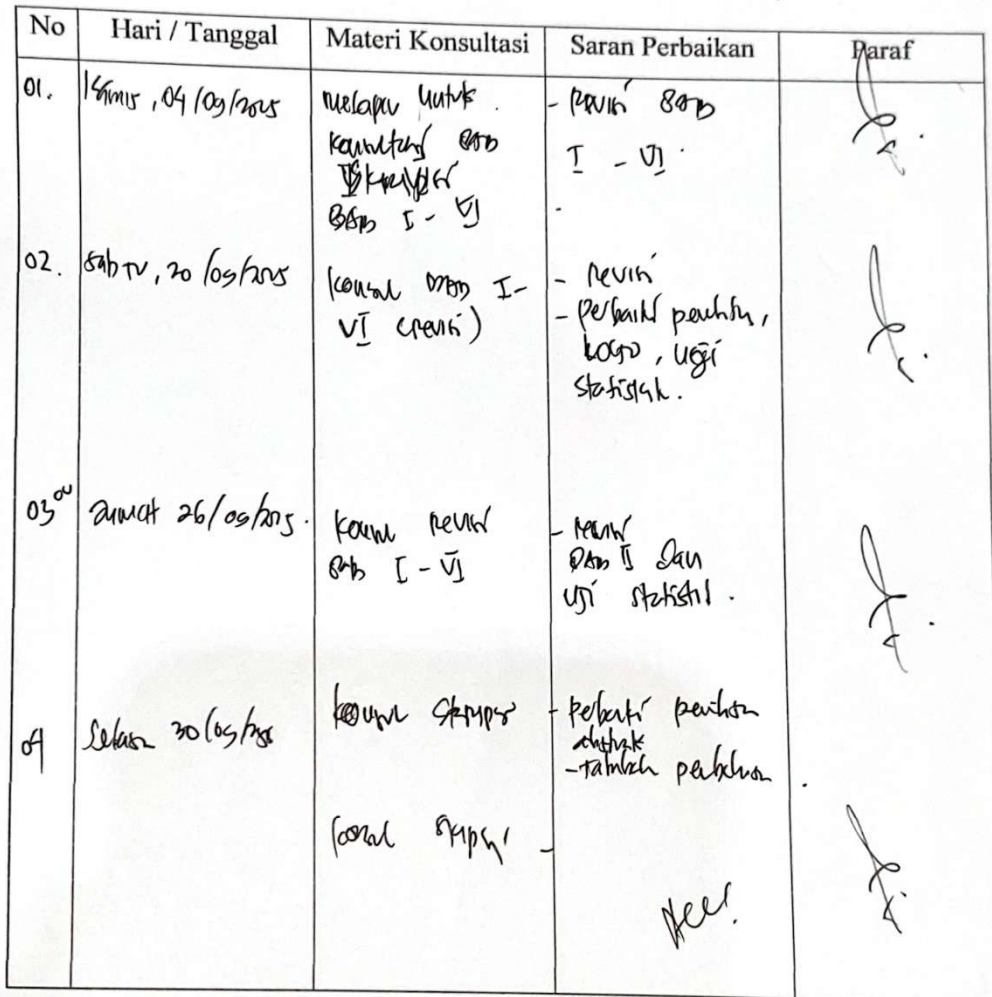 No Hari / Tanggal Materi Konsultasi Saran Perbaikan Paraf
01. Kamis, 04/09/2025
melapor untuk
konsultasi BAB
Skripsi
BAB I - VI
- Revisi BAB
I - VI.
02. Sabtu, 20/09/2025
konsul BAB I-
VI (revisi)
- revisi
- perbaiki
uji
statistik.
03 Jumat 26/09/2025.
konsul revisi
BAB I - VI
- revisi
BAB II dan
uji statistik.
04 Selasa 30/09/2025
konsul skripsi
- Perbaiki
abstrak
- tambah
konsul skripsi
-
Acc!